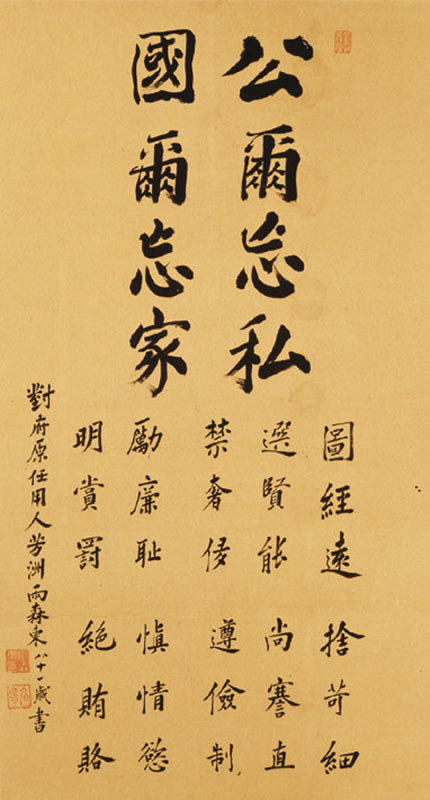 公爾忘私
國爾忘家
圖經遠 捨苛細
選賢能 尚謇直
禁奢侈 遵儉制
勵廉耻 愼情慾
明賞罰 絶賄賂
對府原任用人芳洲雨森東八十一歲書